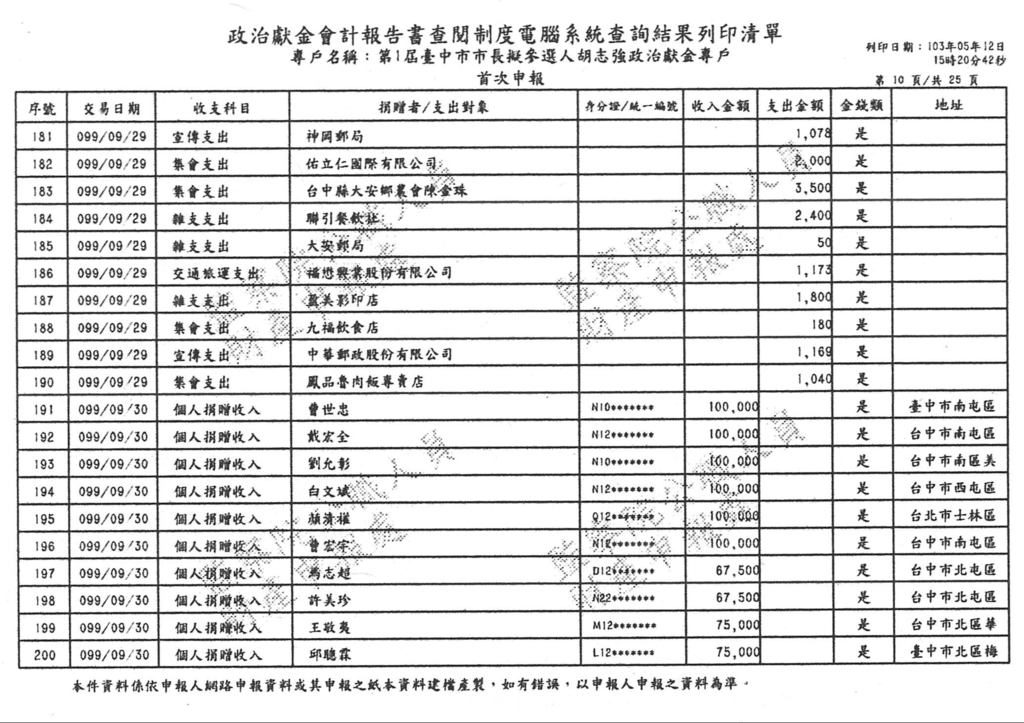 政治獻金會計報告書查閱制度電腦系統查詢結果列印清單
專戶名稱：第1屆臺中市市長擬參選人胡志強政治獻金專戶
列印日期：103年05年12日
15時20分42秒
首次申報
第 10 頁/共 25 頁
序號 交易日期 收支科目 捐贈者/支出對象 身分證/統一編號 收入金額 支出金額 金錢類 地址
181 099/09/29 宣傳支出 神岡郵局 1,078 是
182 099/09/29 集會支出 佑立仁國際有限公司 2,000 是
183 099/09/29 集會支出 台中縣大安鄉農會陳金珠 3,500 是
184 099/09/29 雜支支出 聯引餐飲社 2,400 是
185 099/09/29 雜支支出 大安郵局 50 是
186 099/09/29 交通旅運支出 福懋興業股份有限公司 1,173 是
187 099/09/29 雜支支出 盈美影印店 1,800 是
188 099/09/29 集會支出 九福飲食店 180 是
189 099/09/29 宣傳支出 中華郵政股份有限公司 1,169 是
190 099/09/29 集會支出 鳳品魯肉飯專賣店 1,040 是
191 099/09/30 個人捐贈收入 曾世忠 N10******* 100,000 是 臺中市南屯區
192 099/09/30 個人捐贈收入 戴宏全 N12******* 100,000 是 台中市南屯區
193 099/09/30 個人捐贈收入 劉允彰 N10******* 100,000 是 台中市南區美
194 099/09/30 個人捐贈收入 白文斌 N12******* 100,000 是 台中市西屯區
195 099/09/30 個人捐贈收入 顏清權 Q12******* 100,000 是 台北市士林區
196 099/09/30 個人捐贈收入 曾宏宇 N12******* 100,000 是 台中市南屯區
197 099/09/30 個人捐贈收入 馮志超 D12******* 67,500 是 台中市北屯區
198 099/09/30 個人捐贈收入 許美珍 N22******* 67,500 是 台中市北屯區
199 099/09/30 個人捐贈收入 王敬夷 M12******* 75,000 是 台中市北區華
200 099/09/30 個人捐贈收入 邱聰霖 L12******* 75,000 是 臺中市北區梅
本件資料係依申報人網路申報資料或其申報之紙本資料建檔產製，如有錯誤，以申報人申報之資料為準。